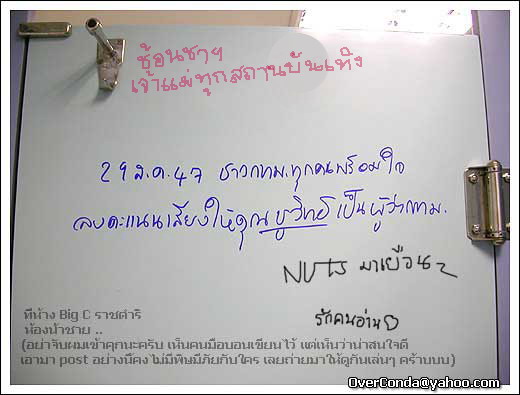 ช้อนชาฯ
เจ้าแม่ทุกสถานบันเทิง
29 ส.ค. 47 ชาวกทม.ทุกคนพร้อมใจ
ลงคะแนนเสียงให้คุณ ชูวิทย์ เป็นผู้ว่ากทม.
NUTS มาเยือน
รักคนอ่าน
ที่ห้าง Big C ราชดำริ
ห้องน้ำชาย ..
(อย่าจับผมเข้าคุกนะครับ เห็นคนมือบอนเขียนไว้ แต่เห็นว่าน่าสนใจดี
เอามา post อย่างนี้คงไม่มีพิษมีภัยกับใคร เลยถ่ายมาให้ดูกันเล่นๆ คร้าบบบ)
OverConda@yahoo.com